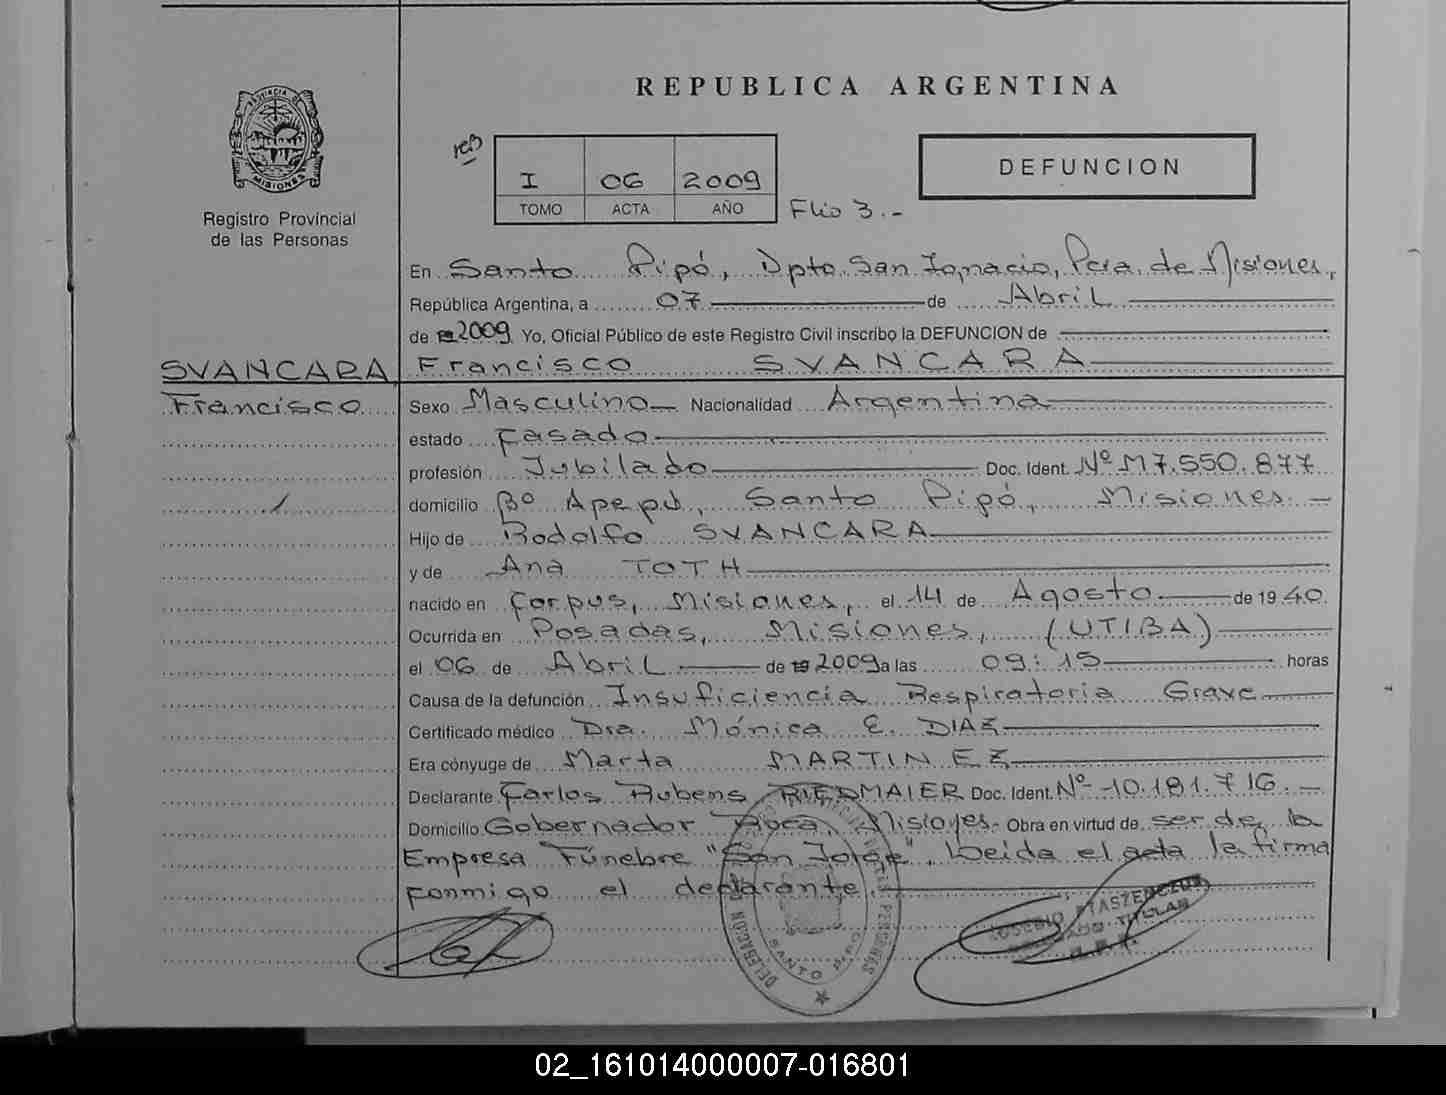 REPUBLICA ARGENTINA
PROVINCIA DE
MISIONES
Registro Provincial
de las Personas
I 06 2009
TOMO ACTA AÑO
Flio 3.-
DEFUNCION
En Santo Pipó, Dpto. San Ignacio, Pcia. de Misiones,
República Argentina, a 07 de Abril
de 2009 Yo, Oficial Público de este Registro Civil inscribo la DEFUNCION de
SVANCARA Francisco SVANCARA
Francisco
Sexo Masculino Nacionalidad Argentina
estado Casado
profesión Jubilado Doc. Ident. Nº M7.550.877
domicilio Bº Apepú, Santo Pipó, Misiones.-
Hijo de Rodolfo SVANCARA
y de Ana TOTH
nacido en Corpus, Misiones, el 14 de Agosto de 1940.
Ocurrida en Posadas, Misiones, (UTIBA)
el 06 de Abril de 19 2009 a las 09:15 horas
Causa de la defunción Insuficiencia Respiratoria Grave
Certificado médico Dra. Mónica E. DIAZ
Era cónyuge de Marta MARTINEZ
Declarante Carlos Rubens RIEDMAIER Doc. Ident. Nº 10.181.716.-
Domicilio Gobernador Roca, Misiones.- Obra en virtud de ser de la
Empresa Fúnebre "San Jorge". Leida el acta la firma
conmigo el declarante.
DELEGACION PERSONAS
SANTO PIPO
TITULAR
02_161014000007-016801